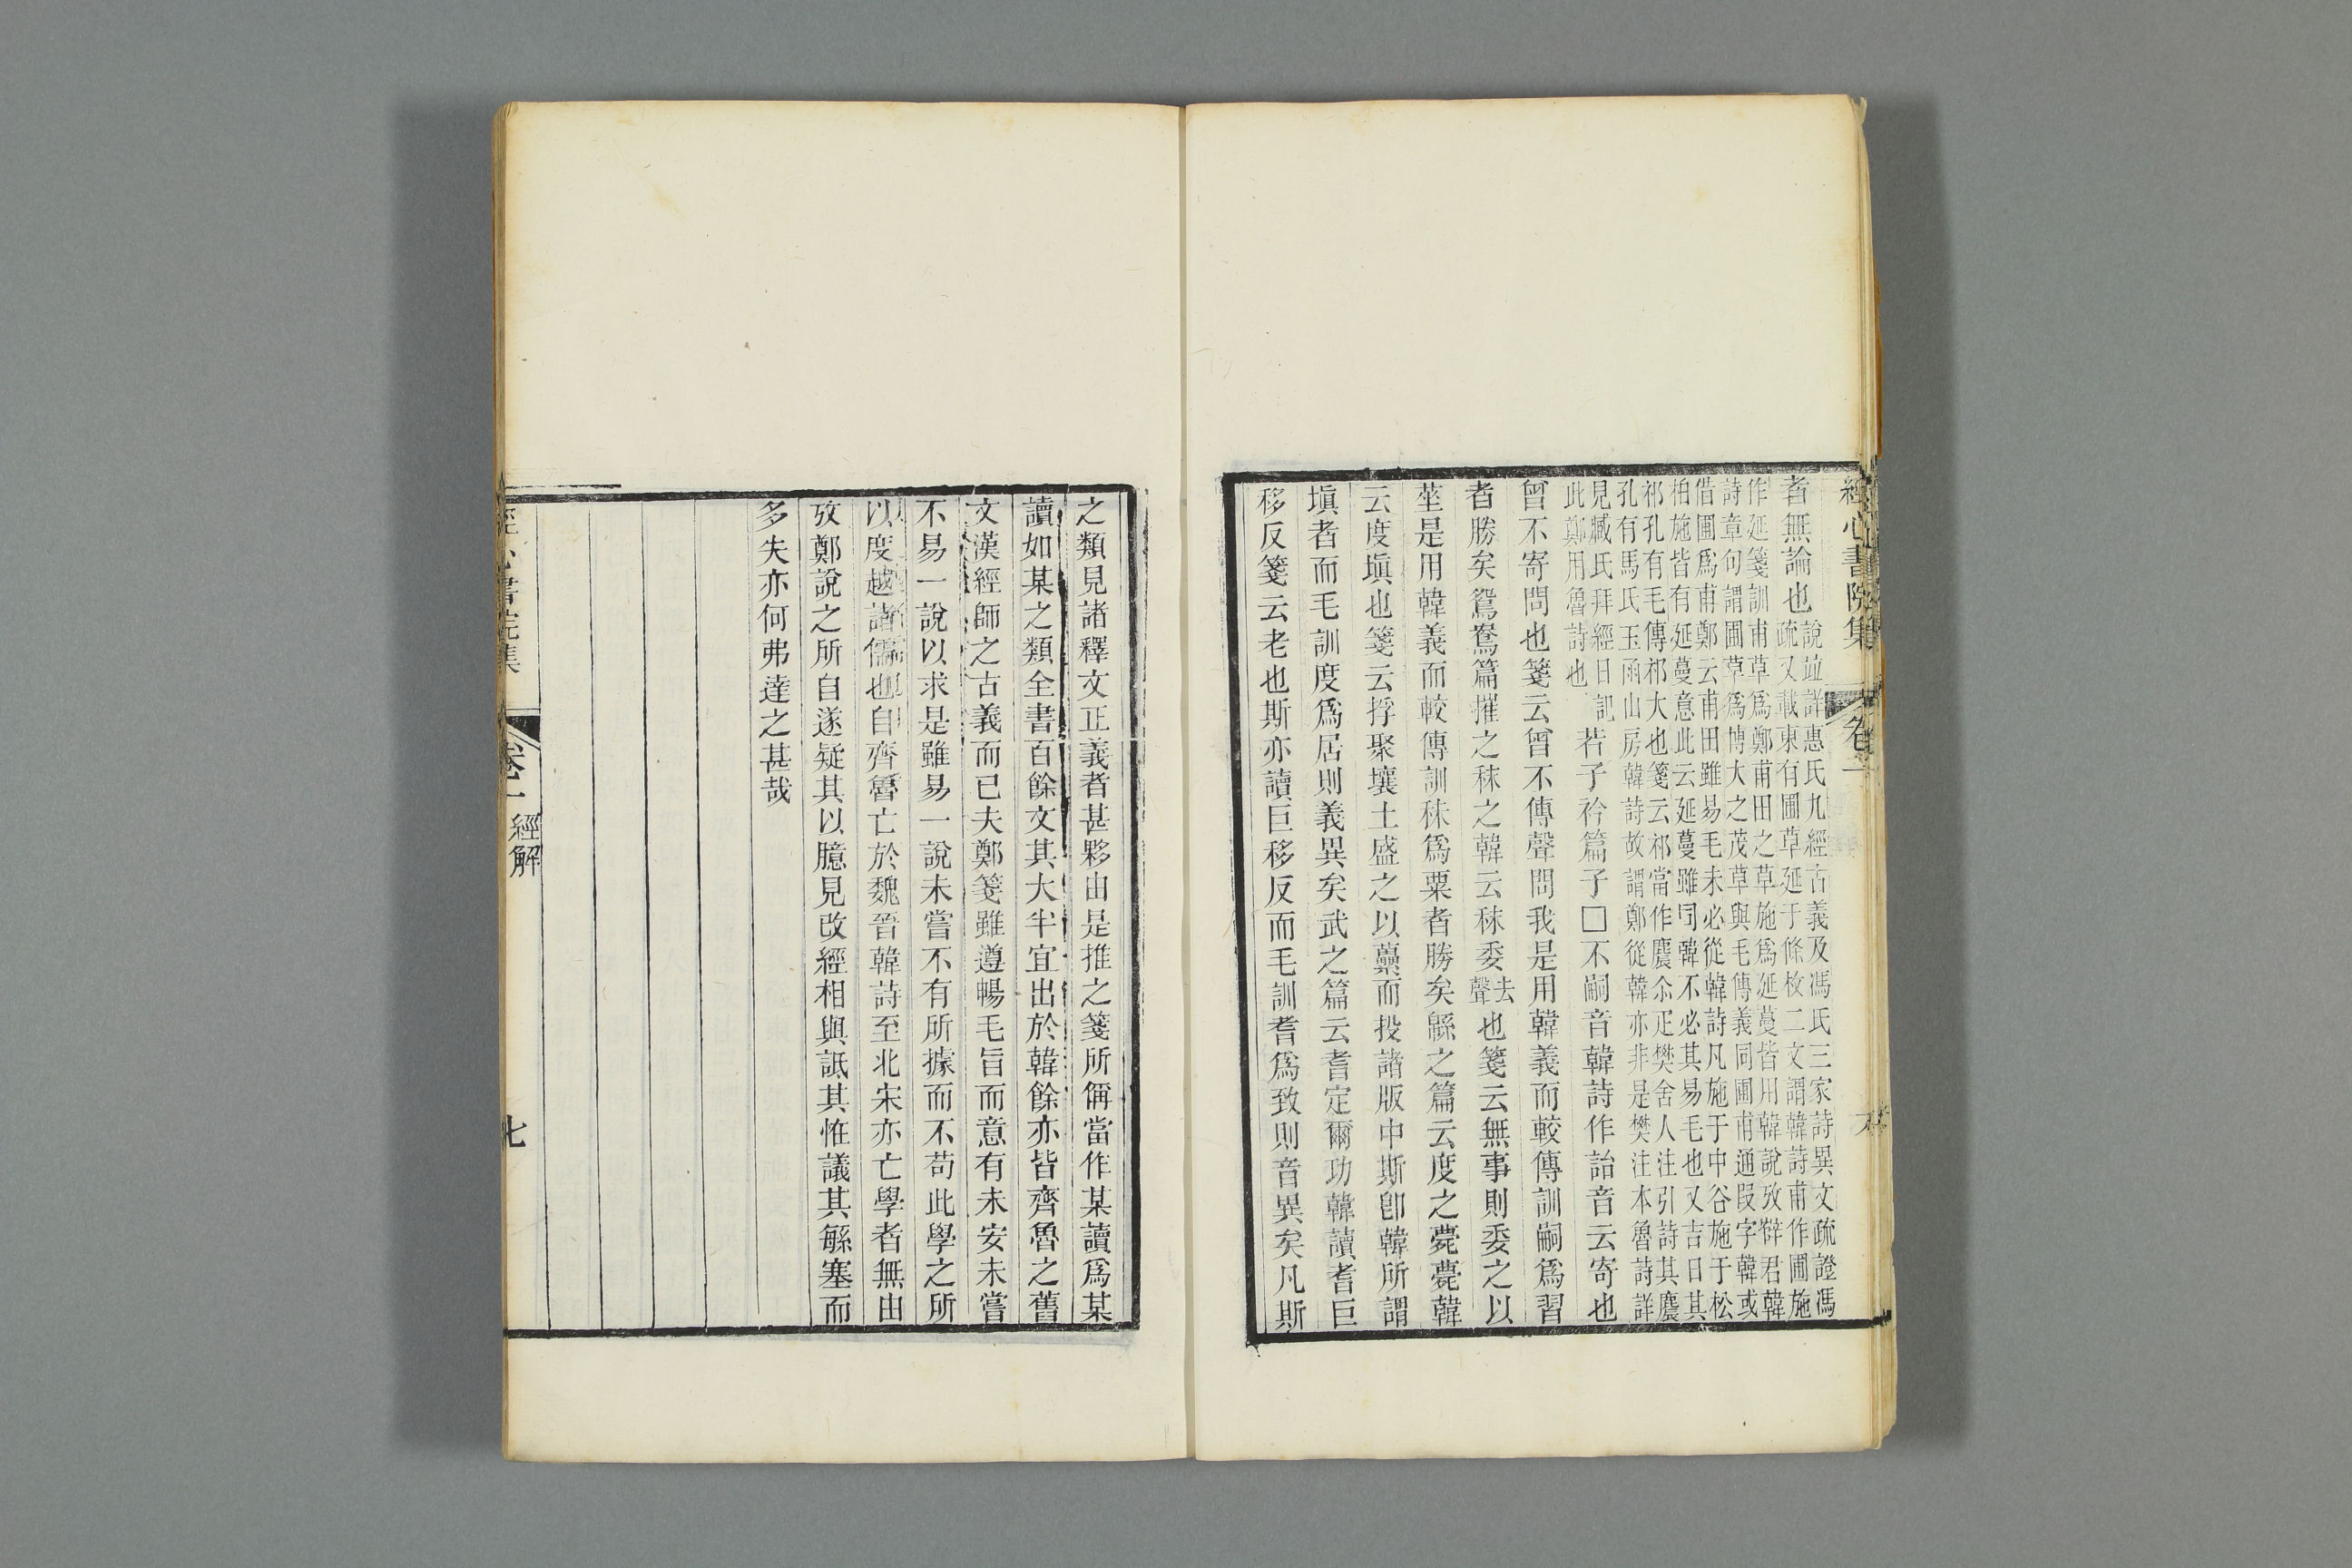 經心書院集 卷一
者無論也說並詳惠氏九經古義及馮氏三家詩異文疏證馮疏又載東有圃草延于條枚二文謂韓詩甫作圃施
作延箋訓甫草爲鄭甫田之草施爲延蔓皆用韓說攷薛君韓詩章句謂圃草爲博大之茂草與毛傳義同圃甫通叚字韓或
借圃爲甫鄭云甫田雖易毛未必從韓詩凡施于中谷施于松柏施皆有延蔓意此云延蔓雖同韓不必其易毛也又吉日其
祁孔有毛傳祁大也箋云祁當作麎尒疋樊舍人注引詩其麎孔有馬氏玉函山房韓詩故謂鄭從韓亦非是樊注本魯詩詳
見臧氏拜經日記此鄭用魯詩也若子衿篇子□不嗣音韓詩作詒音云寄也
曾不寄問也箋云曾不傳聲問我是用韓義而較傳訓嗣爲習
者勝矣鴛鴦篇摧之秣之韓云秣委去聲也箋云無事則委之以
莝是用韓義而較傳訓秣爲粟者勝矣緜之篇云度之薨薨韓
云度塡也箋云捊聚壤土盛之以虆而投諸版中斯卽韓所謂
塡者而毛訓度爲居則義異矣武之篇云耆定爾功韓讀耆巨
移反箋云老也斯亦讀巨移反而毛訓耆爲致則音異矣凡斯
之類見諸釋文正義者甚夥由是推之箋所偁當作某讀爲某
讀如某之類全書百餘文其大半宜出於韓餘亦皆齊魯之舊
文漢經師之古義而已夫鄭箋雖遵暢毛旨而意有未安未嘗
不易一說以求是雖易一說未嘗不有所據而不苟此學之所
以度越諸儒也自齊魯亡於魏晉韓詩至北宋亦亡學者無由
攷鄭說之所自遂疑其以臆見改經相與詆其怪議其緐塞而
多失亦何弗達之甚哉
經心書院集 卷一 經解 七